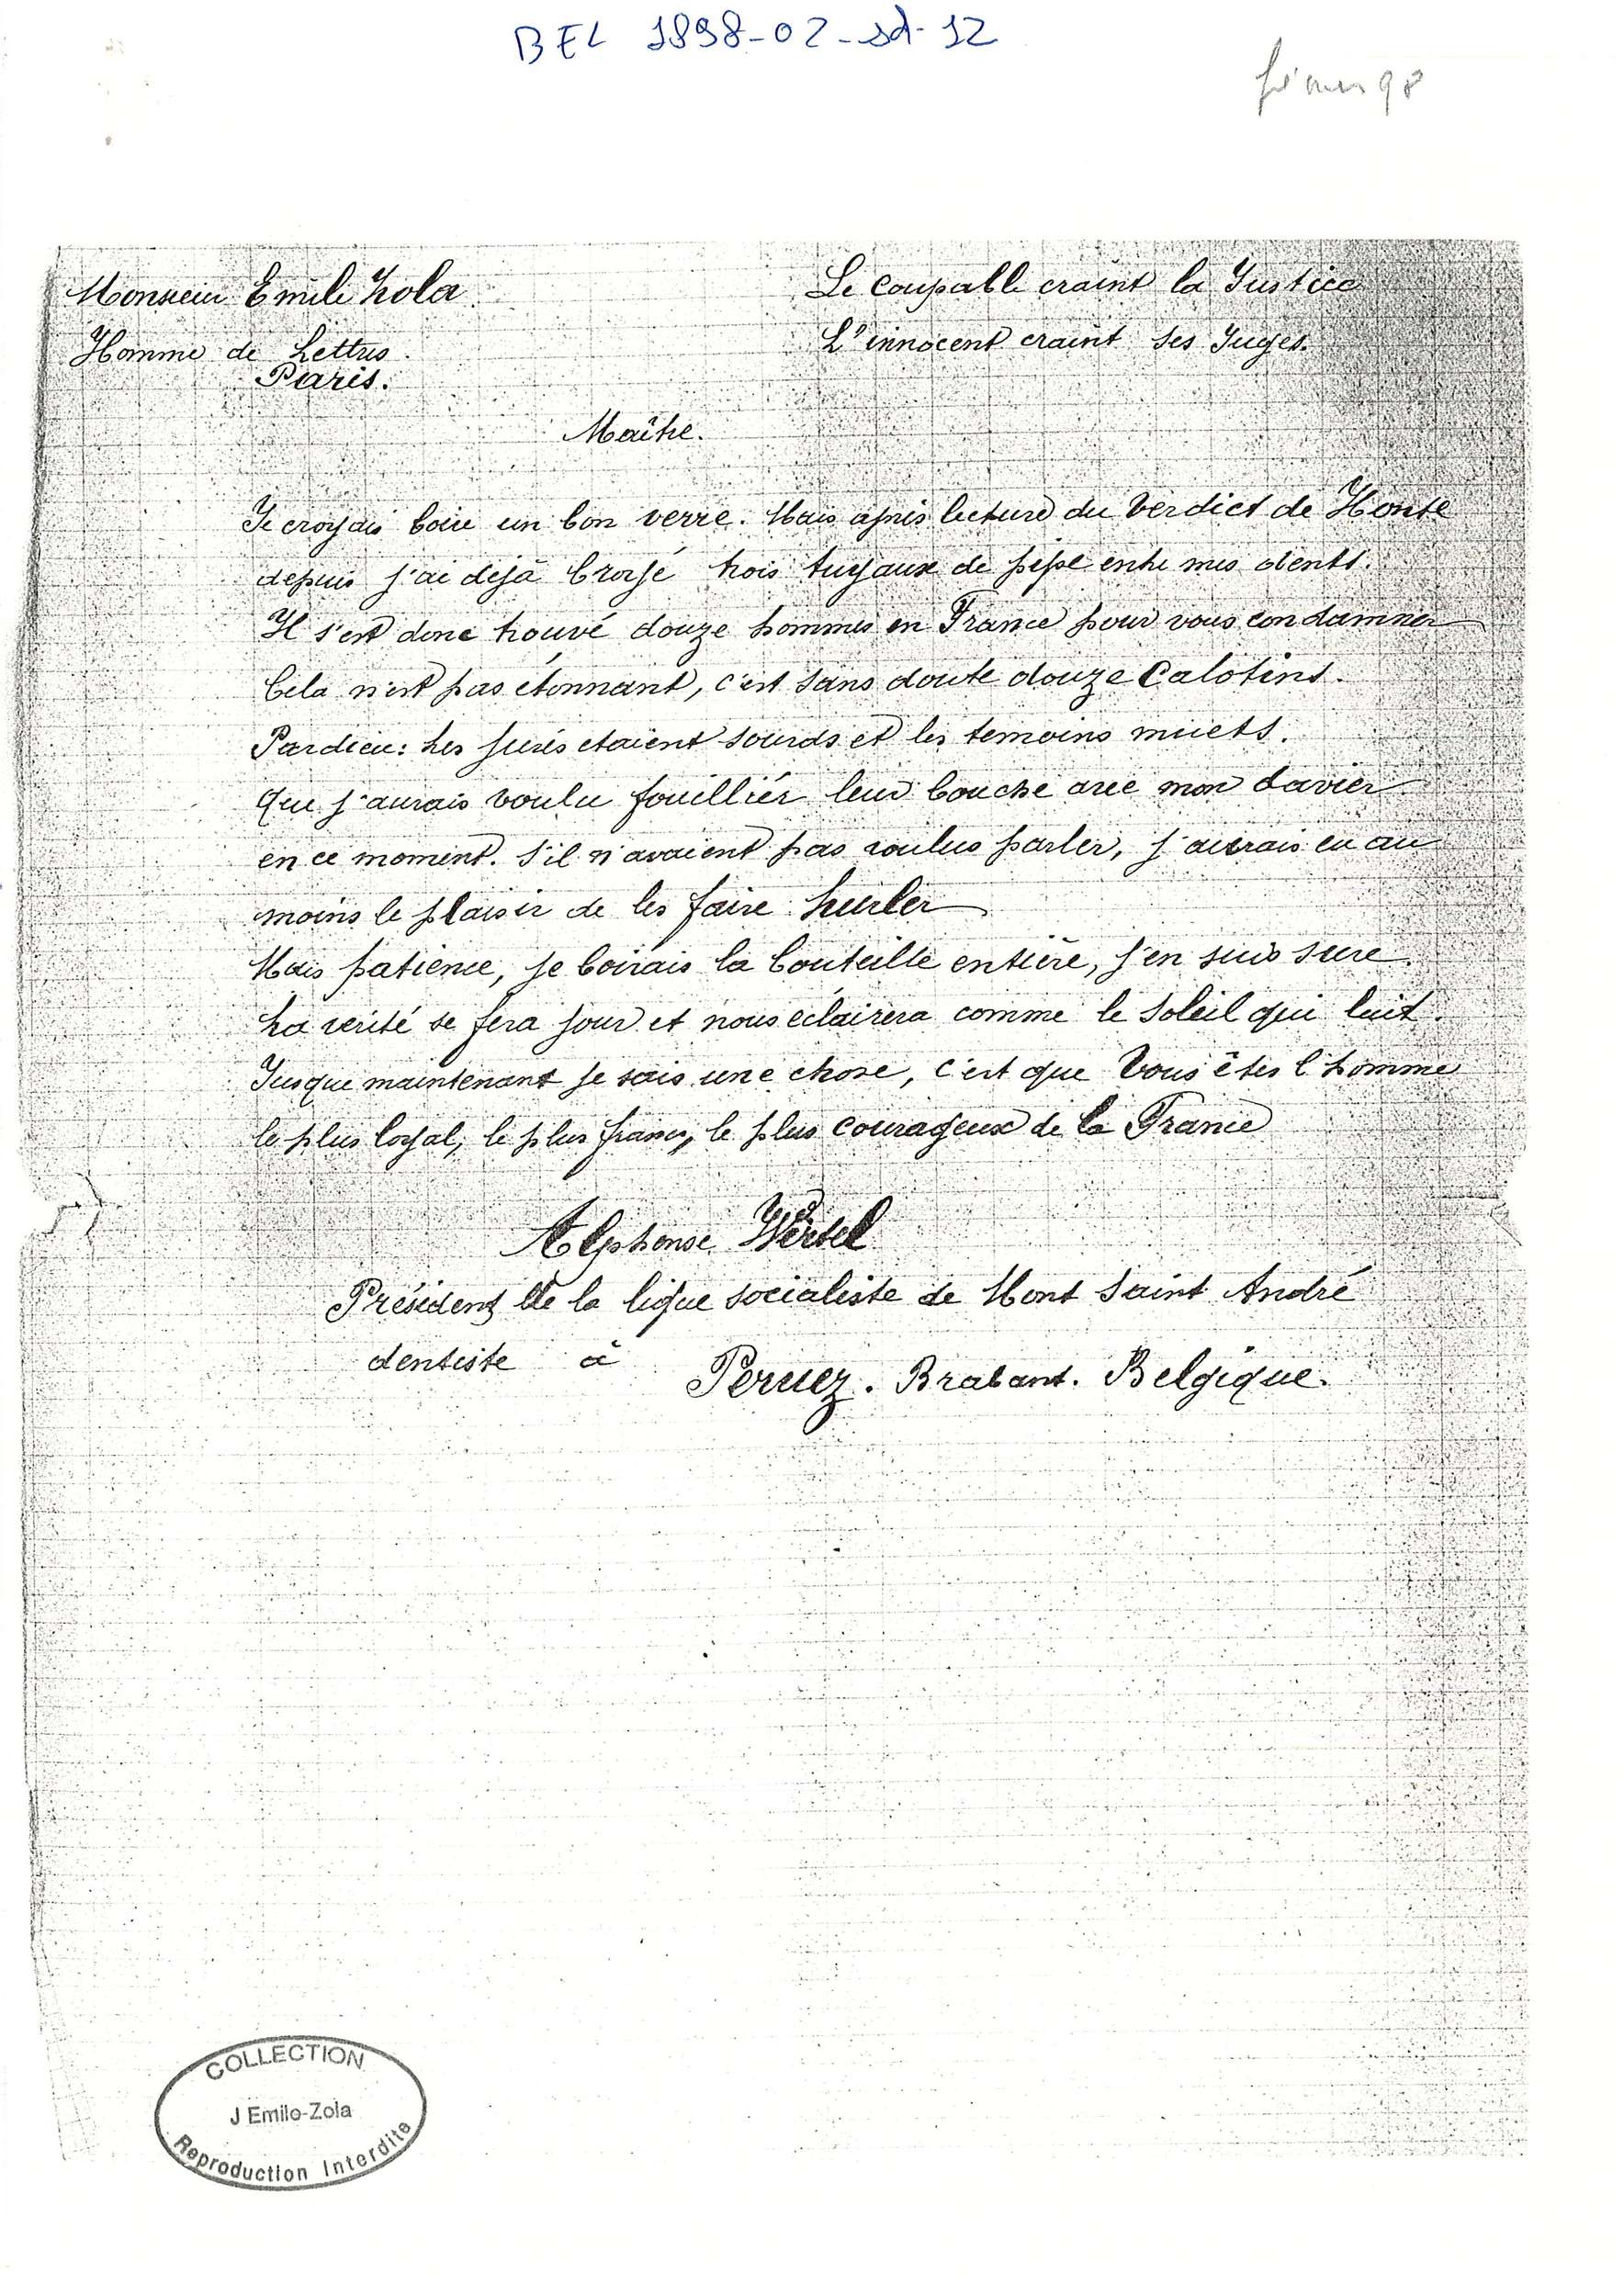 BEL 1898-02-sd-12
février 98
Monsieur Emile Zola
Homme de Lettres.
Paris.
Le Coupable craint la Justice
L'innocent craint ses Juges.
Maître.
Je croyais boire un bon verre. Mais après lecture du Verdict de Honte
depuis j'ai déjà broyé trois tuyaux de pipe entre mes dents.
Il s'est donc trouvé douze hommes en France pour vous condamner
Cela n'est pas étonnant, c'est sans doute douze Calotins.
Pardieu: Les jurés etaient sourds et les temoins muets.
Que j'aurais voulu fouilliér leur bouche avec mon davier
en ce moment. S'il n'avaient pas voulus parler, j'aurais eu au
moins le plaisir de les faire hurler
Mais patience, je boirais la bouteille entière, j'en suis sure.
La verité se fera jour et nous éclairera comme le Soleil qui luit.
Jusque maintenant je sais une chose, c'est que Vous êtes l'homme
le plus loyal, le plus franc, le plus courageux de la France
Alphonse
Président de la ligue socialiste de Mont Saint André
dentiste à Perwez. Brabant. Belgique.
COLLECTION
J Emile-Zola
Reproduction Interdite